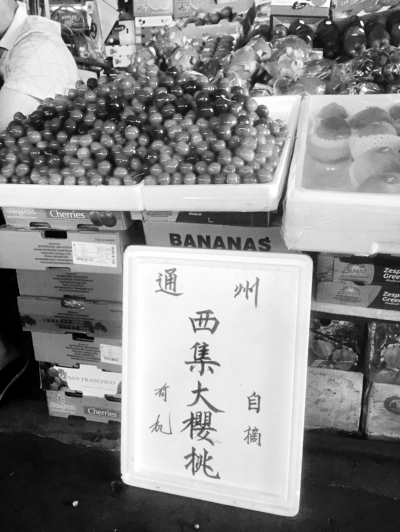 Cherries
BANANAS
Zesp
Green
SAN FRANCISCO
Cherries
通州
西集大櫻桃
有机
自摘